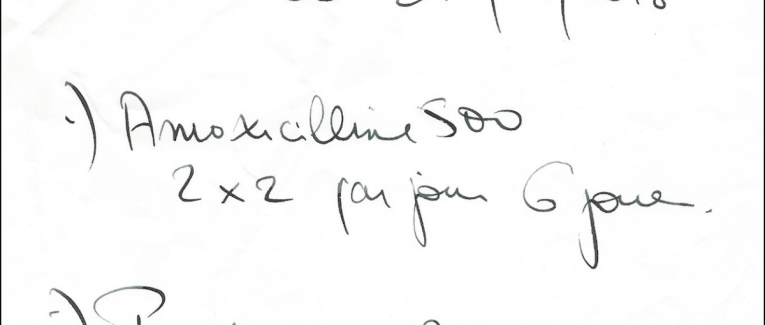 .) Amoxicilline 500
2 x 2 par jour 6 jours.